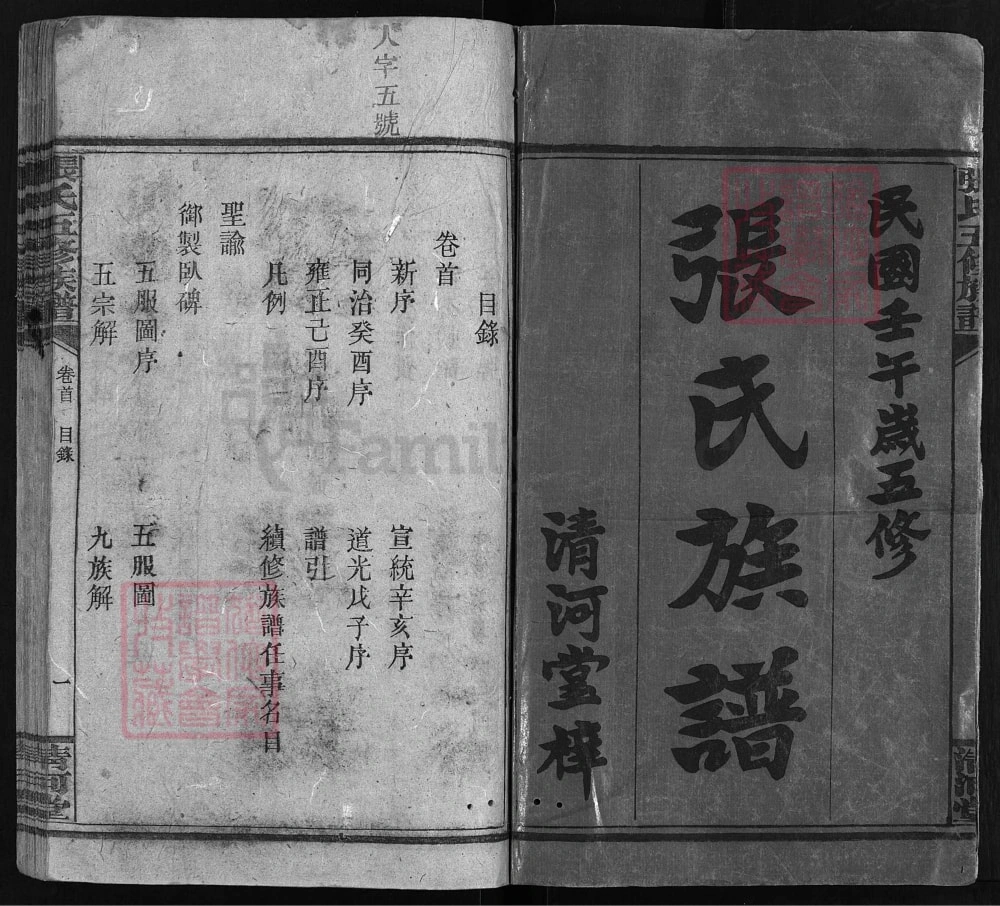 民國壬午歲五修
張氏族譜
清河堂梓
人字五號
目錄
卷首
新序 宣統辛亥序
同治癸酉序 道光戊子序
雍正己酉序 譜引
凡例 續修族譜任事名目
聖諭
御製臥碑
五服圖序 五服圖
五宗解 九族解
張氏五修族譜
卷首 目錄
一
清河堂
張氏五修族譜
清河堂
Family